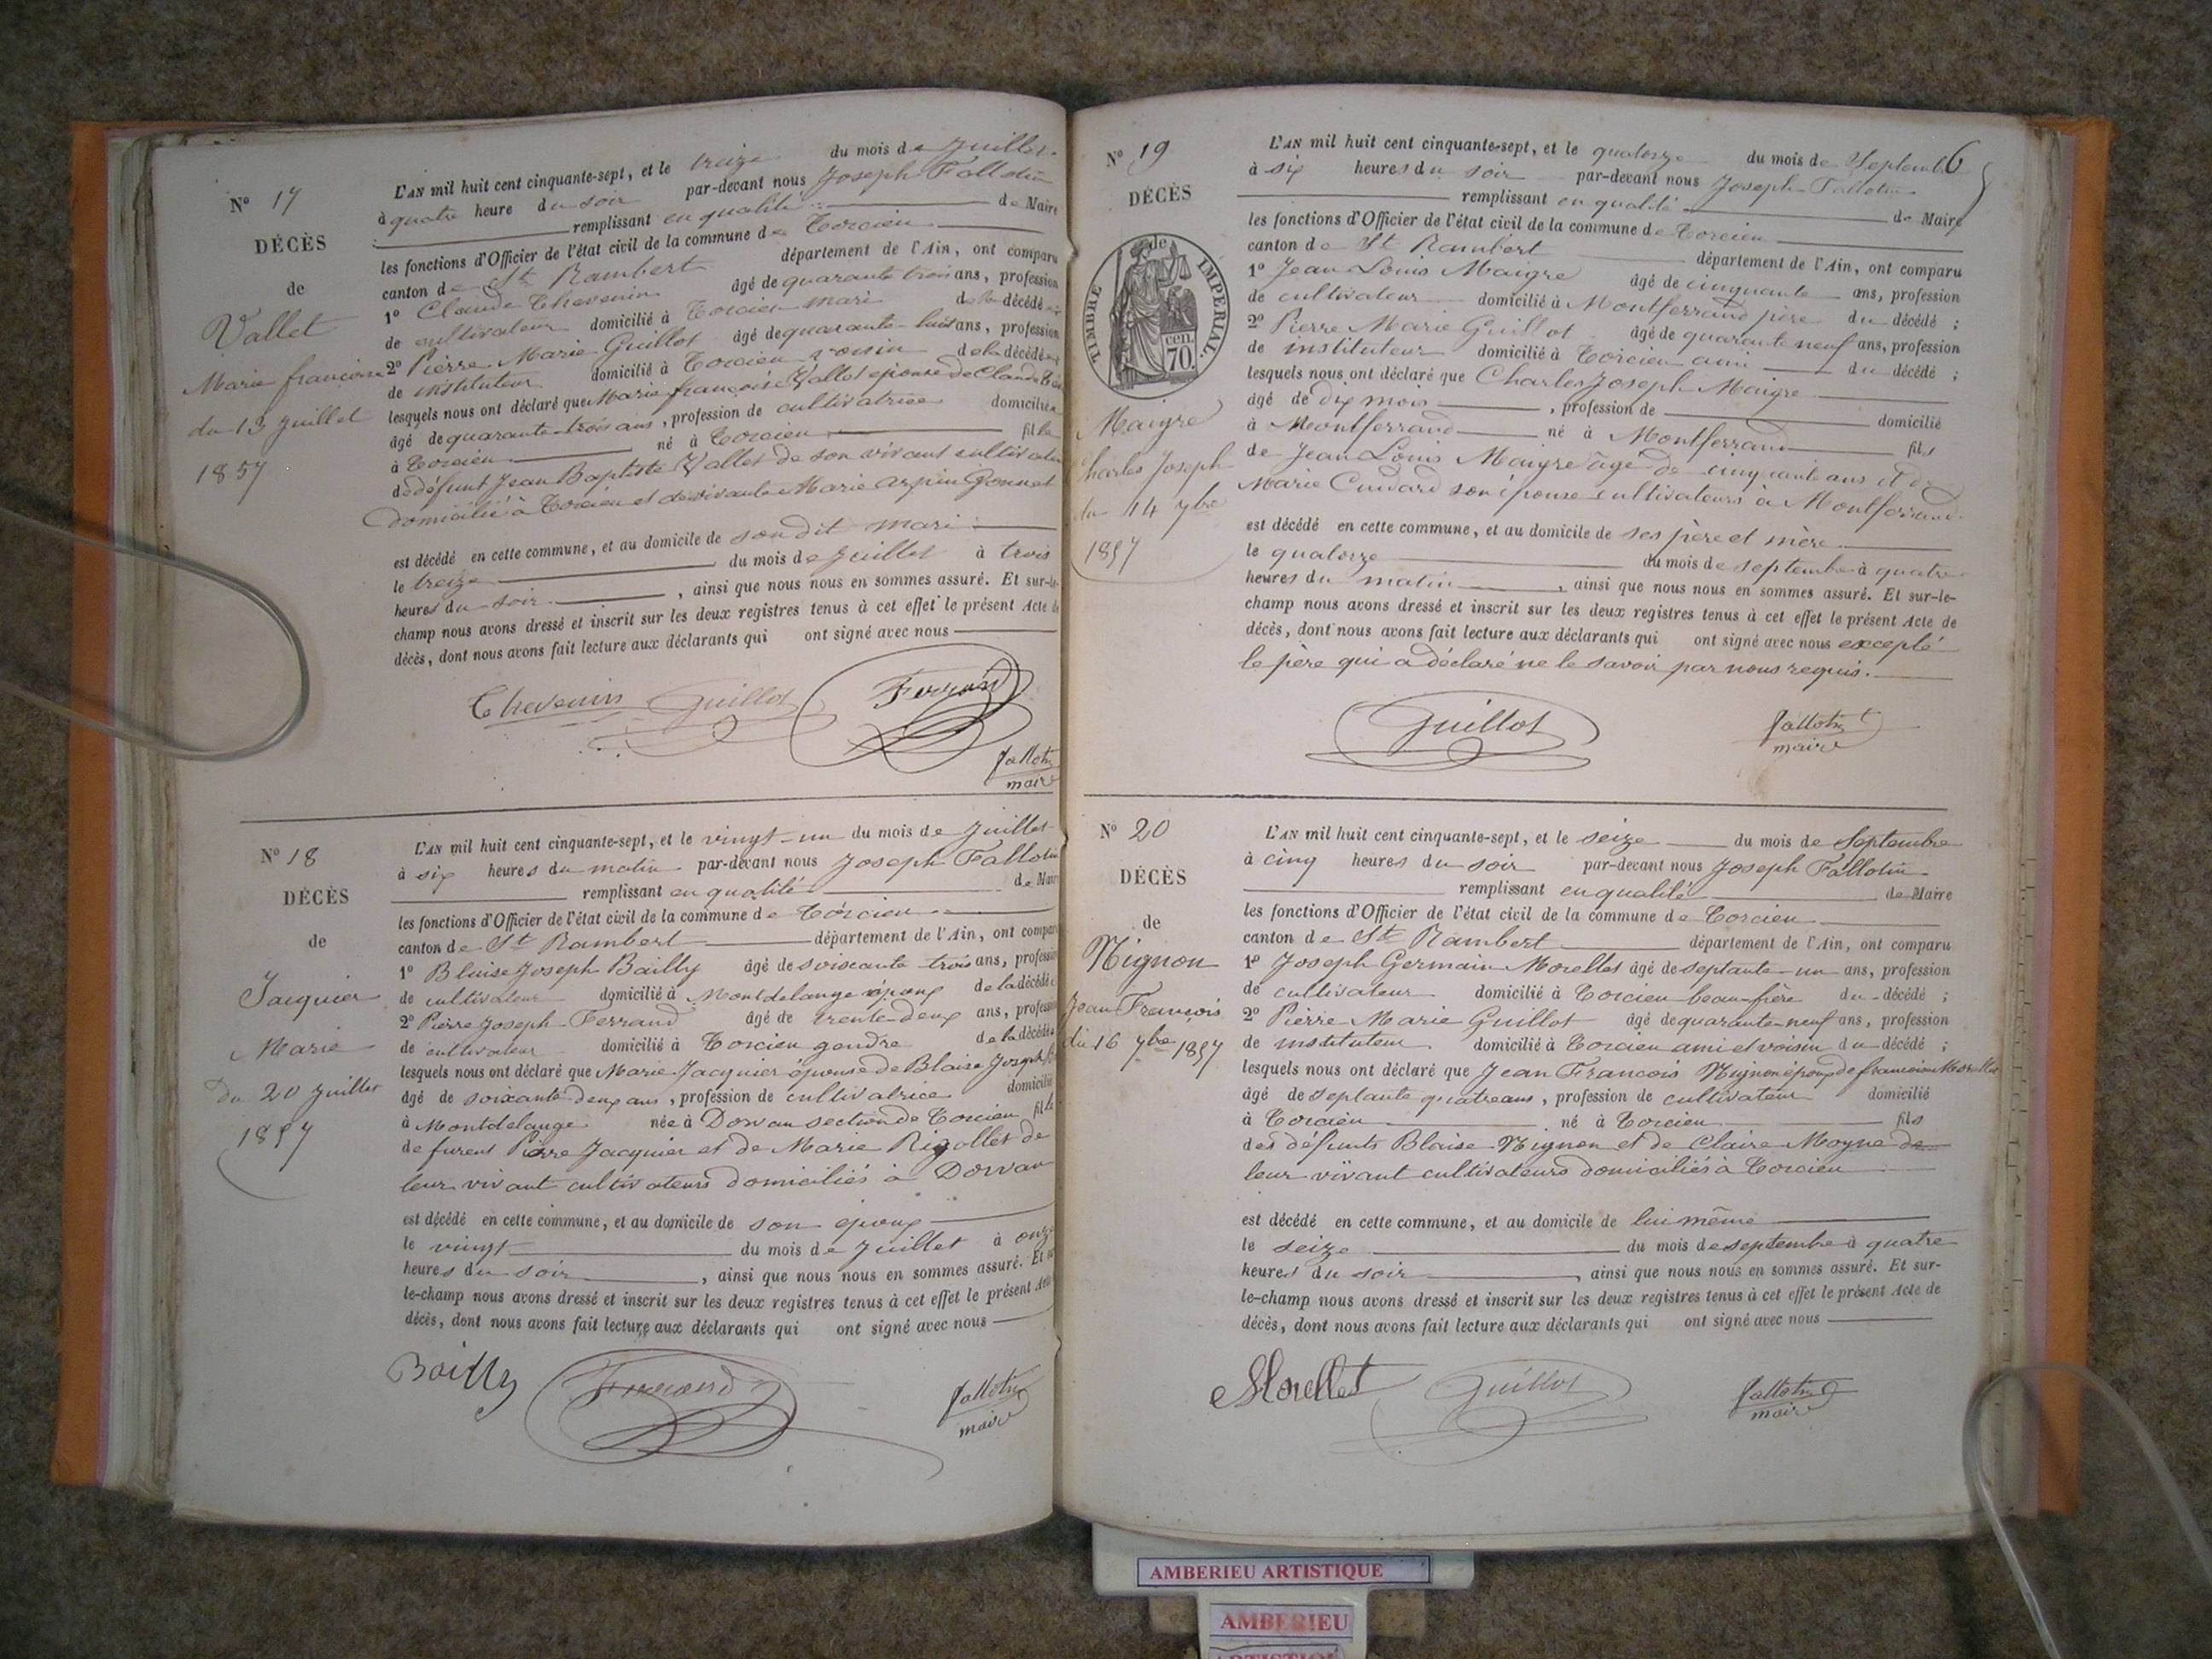 N° 17
DÉCÈS
de
Vallet
Marie françoise
du 13 juillet
1857
L'AN mil huit cent cinquante-sept, et le treize du mois de Juillet
à quatre heure du soir par-devant nous Joseph Fallotin
remplissant en qualité de Maire
les fonctions d'Officier de l'état civil de la commune de Torcieu
canton de St Rambert département de l'Ain, ont comparu
1° Claude Thevenin âgé de quarante trois ans, profession
de cultivateur domicilié à Torcieu mari de la décédée
2° Pierre Marie Guillot âgé de quarante-huit ans, profession
de instituteur domicilié à Torcieu voisin de la décédée
lesquels nous ont déclaré que Marie françoise Vallet epouse de Claude
âgé de quarante-trois ans, profession de cultivatrice domicilié
à Torcieu né à Torcieu fille
de défunt Jean Baptiste Vallet de son vivant cultivateur
domicilié à Torcieu et de vivante Marie Arpin Gonnet
est décédé en cette commune, et au domicile de son dit mari
le treize du mois de Juillet à trois
heures du soir, ainsi que nous nous en sommes assuré. Et sur-le-
champ nous avons dressé et inscrit sur les deux registres tenus à cet effet le présent Acte de
décès, dont nous avons fait lecture aux déclarants qui ont signé avec nous
Thevenin Guillot Ferrand
fallotin
maire
N° 18
DÉCÈS
de
Jacquier
Marie
Du 20 Juillet
1857
L'AN mil huit cent cinquante-sept, et le vingt-un du mois de Juillet
à six heures du matin par-devant nous Joseph Fallotin
remplissant en qualité de Maire
les fonctions d'Officier de l'état civil de la commune de Torcieu
canton de St Rambert département de l'Ain, ont comparu
1° Blaise Joseph Bailly âgé de soixante trois ans, profession
de cultivateur domicilié à Montdelange époux de la décédée
2° Pierre Joseph Ferrand âgé de trente-deux ans, profession
de cultivateur domicilié à Torcieu gendre de la décédée
lesquels nous ont déclaré que Marie Jacquier épouse de Blaise Joseph
âgé de soixante deux ans, profession de cultivatrice domicilié
à Montdelange née à Dorvan section de Torcieu fille
de furent Pierre Jacquier et de Marie Rigollet de
leur vivant cultivateurs domiciliés à Dorvan
est décédé en cette commune, et au domicile de son epoux
le vingt du mois de Juillet à onze
heures du soir, ainsi que nous nous en sommes assuré. Et sur
le-champ nous avons dressé et inscrit sur les deux registres tenus à cet effet le présent Acte
décès, dont nous avons fait lecture aux déclarants qui ont signé avec nous
Bailly Ferrand fallotin
maire
N° 19
DÉCÈS
de
TIMBRE IMPERIAL.
cen.
70.
Maigre
Charles Joseph
du 14 7bre
1857
6
L'AN mil huit cent cinquante-sept, et le quatorze du mois de Septemb
à six heures du soir par-devant nous Joseph Fallotin
remplissant en qualité de Maire
les fonctions d'Officier de l'état civil de la commune de Torcieu
canton de St Rambert département de l'Ain, ont comparu
1° Jean Louis Maigre âgé de cinquante ans, profession
de cultivateur domicilié à Montferrand père du décédé ;
2° Pierre Marie Guillot âgé de quarante neuf ans, profession
de instituteur domicilié à Torcieu ami du décédé ;
lesquels nous ont déclaré que Charles Joseph Maigre
âgé de dix mois, profession de domicilié
à Montferrand né à Montferrand fils
de Jean Louis Maigre âgé de cinquante ans et de
Marie son épouse cultivateurs à Montferrand
est décédé en cette commune, et au domicile de ses père et mère
le quatorze du mois de septembre à quatre
heures du matin, ainsi que nous nous en sommes assuré. Et sur-le-
champ nous avons dressé et inscrit sur les deux registres tenus à cet effet le présent Acte de
décès, dont nous avons fait lecture aux déclarants qui ont signé avec nous excepté
le père qui a déclaré ne le savoir par nous requis.
Guillot fallotin
maire
N° 20
DÉCÈS
de
Mignon
Jean François
du 16 7bre 1857
L'AN mil huit cent cinquante-sept, et le seize du mois de Septembre
à cinq heures du soir par-devant nous Joseph Fallotin
remplissant en qualité de Maire
les fonctions d'Officier de l'état civil de la commune de Torcieu
canton de St Rambert département de l'Ain, ont comparu
1° Joseph Germain Morellet âgé de septante-un ans, profession
de cultivateur domicilié à Torcieu beau-frère du décédé ;
2° Pierre Marie Guillot âgé de quarante-neuf ans, profession
de instituteur domicilié à Torcieu ami et voisin du décédé ;
lesquels nous ont déclaré que Jean Francois Mignon époux de francoise Morellet
âgé de septante quatre ans, profession de cultivateur domicilié
à Torcieu né à Torcieu fils
des défunts Blaise Mignon et de Claire Moyne de
leur vivant cultivateurs domiciliés à Torcieu
est décédé en cette commune, et au domicile de lui même
le seize du mois de septembre à quatre
heures du soir, ainsi que nous nous en sommes assuré. Et sur-
le-champ nous avons dressé et inscrit sur les deux registres tenus à cet effet le présent Acte de
décès, dont nous avons fait lecture aux déclarants qui ont signé avec nous
Morellet Guillot fallotin
maire
AMBERIEU ARTISTIQUE
AMBERIEU
ARTISTIQUE